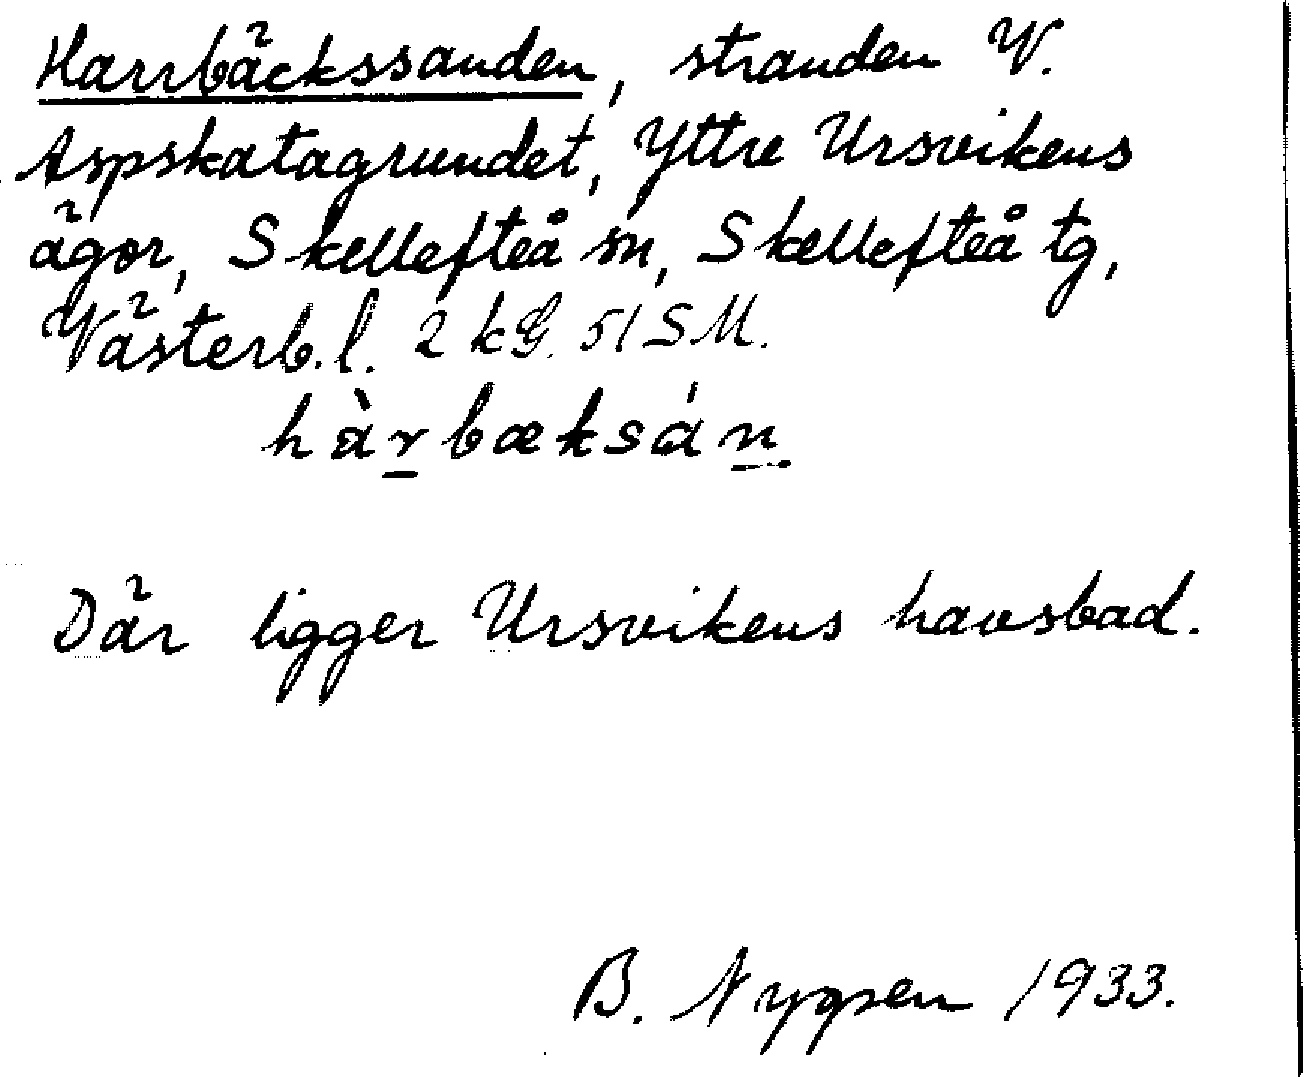 Harrbäckssanden, stranden V.
Aspskatagrundet, Yttre Ursvikens
ägor, Skellefteå sn, Skellefteå tg,
Västerb.l. 2 kG. 51 SM.
hàrbæksán.
Där ligger Ursvikens havsbad.
B. 1933.